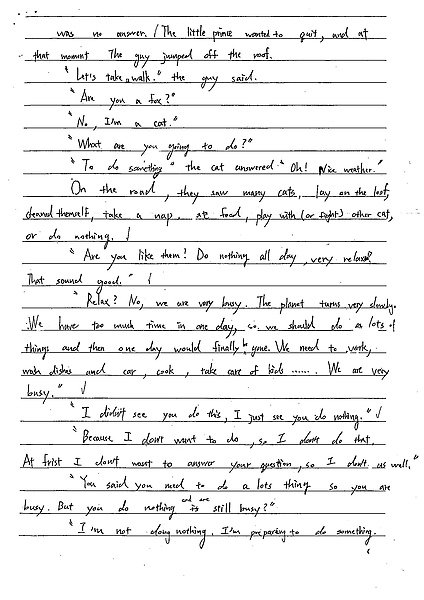 was no answer. / The little prince wanted to quit, and at
that moment The guy jumped off the roof.
"Let's take a walk." the guy said.
"Are you a fox?"
"No, I'm a cat."
"What are you going to do?"
"To do something" the cat answered "Oh! Nice weather."
On the road, they saw many cats, lay on the loof,
cleaned themself, take a nap, eat food, play with (or fight) other cat,
or do nothing.
"Are you like them? Do nothing all day, very relaxed
That sound good."
"Relax? No, we are very busy. The planet turns very slowly.
We have too much time in one day, so we should do as lots of
things and then one day would finally be gone. We need to work,
wash dishes and car, cook, take care of kids ...... We are very
busy."
"I didn't see you do this, I just see you do nothing."
"Because I don't want to do, so I don't do that,
At frist I don't want to answer your question, so I don't as well."
"You said you need to do a lots thing so you are
busy. But you do nothing and are still busy?"
"I'm not doing nothing. I'm preparing to do something.